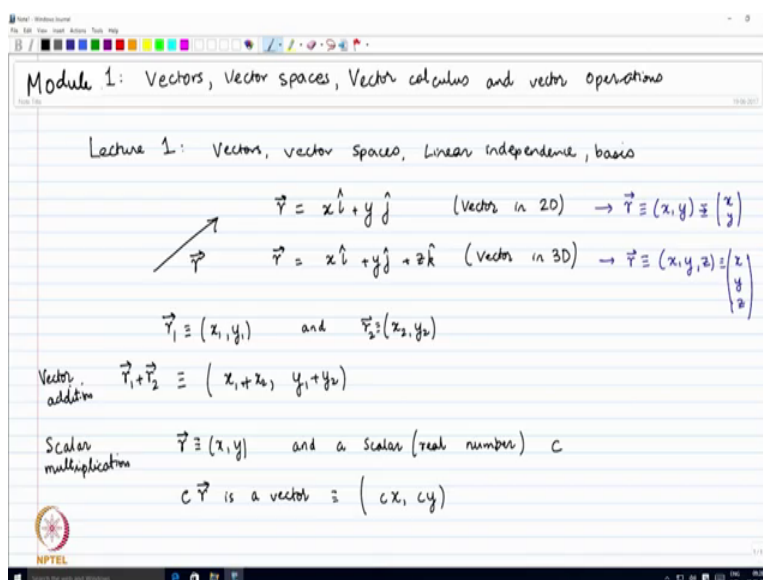 Note1 - Windows Journal
File Edit View Insert Actions Tools Help
Module 1: Vectors, Vector spaces, Vector calculus and vector operations
Note Title
19-06-2017
Lecture 1: Vectors, vector spaces, Linear independence, basis
r⃗ = x î + y ĵ (Vector in 2D) → r⃗ ≡ (x, y) ≡ (x y)
r⃗
r⃗ = x î + y ĵ + z k̂ (Vector in 3D) → r⃗ ≡ (x, y, z) ≡ (x y z)
r⃗₁ ≡ (x₁, y₁) and r⃗₂ ≡ (x₂, y₂)
Vector addition r⃗₁ + r⃗₂ ≡ (x₁+x₂, y₁+y₂)
Scalar multiplication r⃗ ≡ (x, y) and a scalar (real number) c
c r⃗ is a vector ≡ (cx, cy)
NPTEL
1/1
Search the web and Windows
ENG